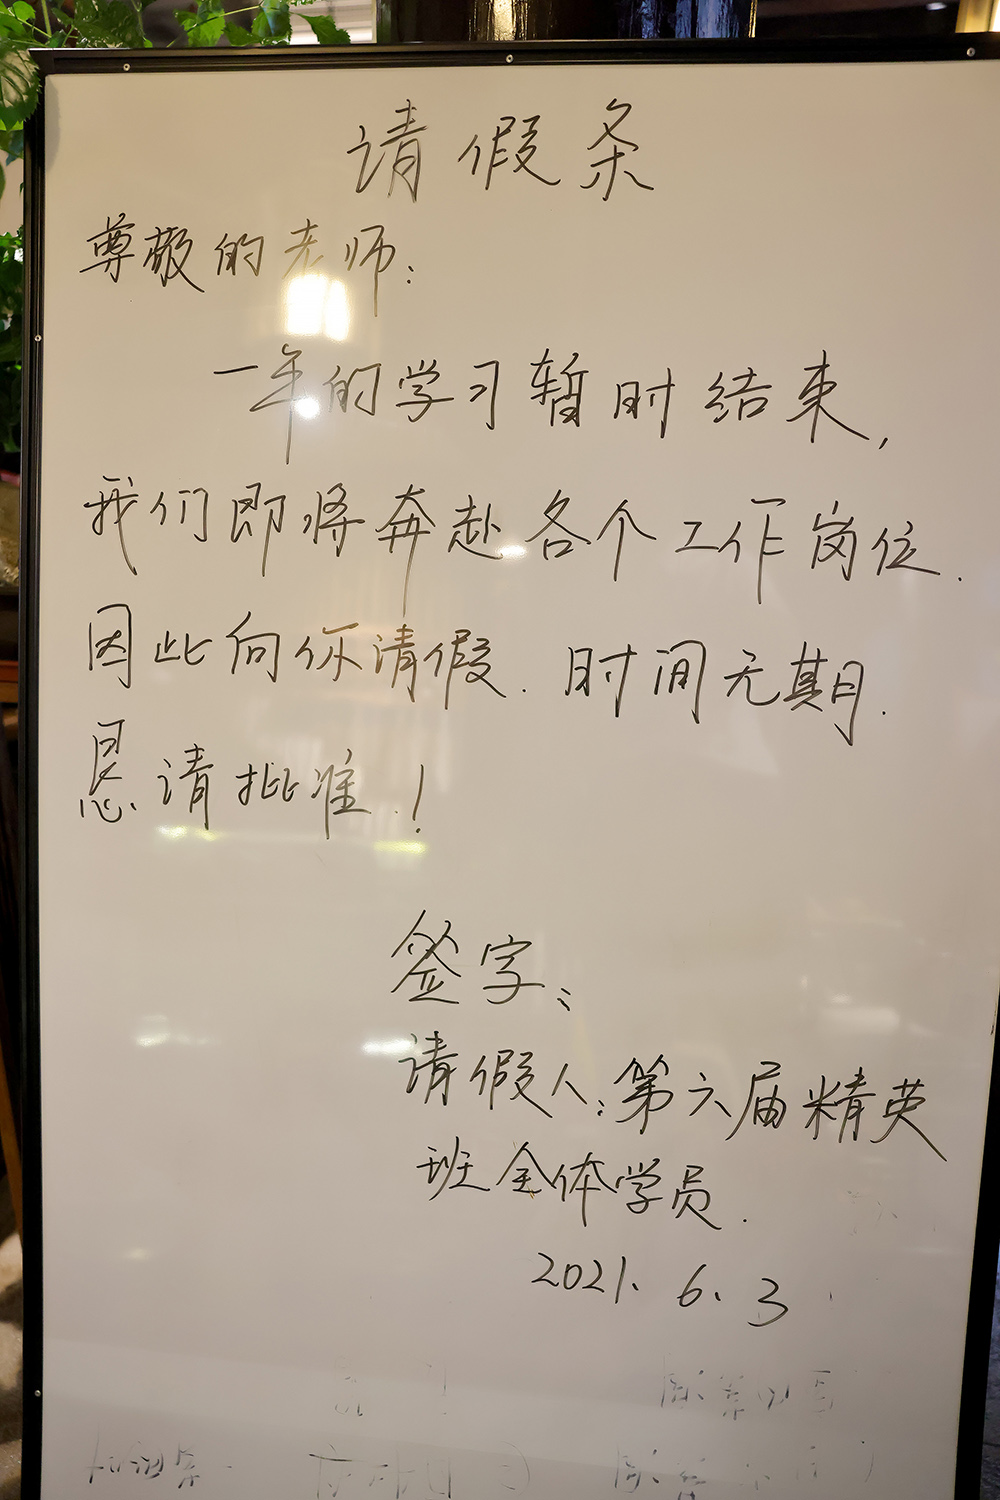 请假条
尊敬的老师：
一年的学习暂时结束，
我们即将奔赴各个工作岗位.
因此向你请假.时间无期.
恳请批准！
签字：
请假人：第六届精英
班全体学员.
2021.6.3